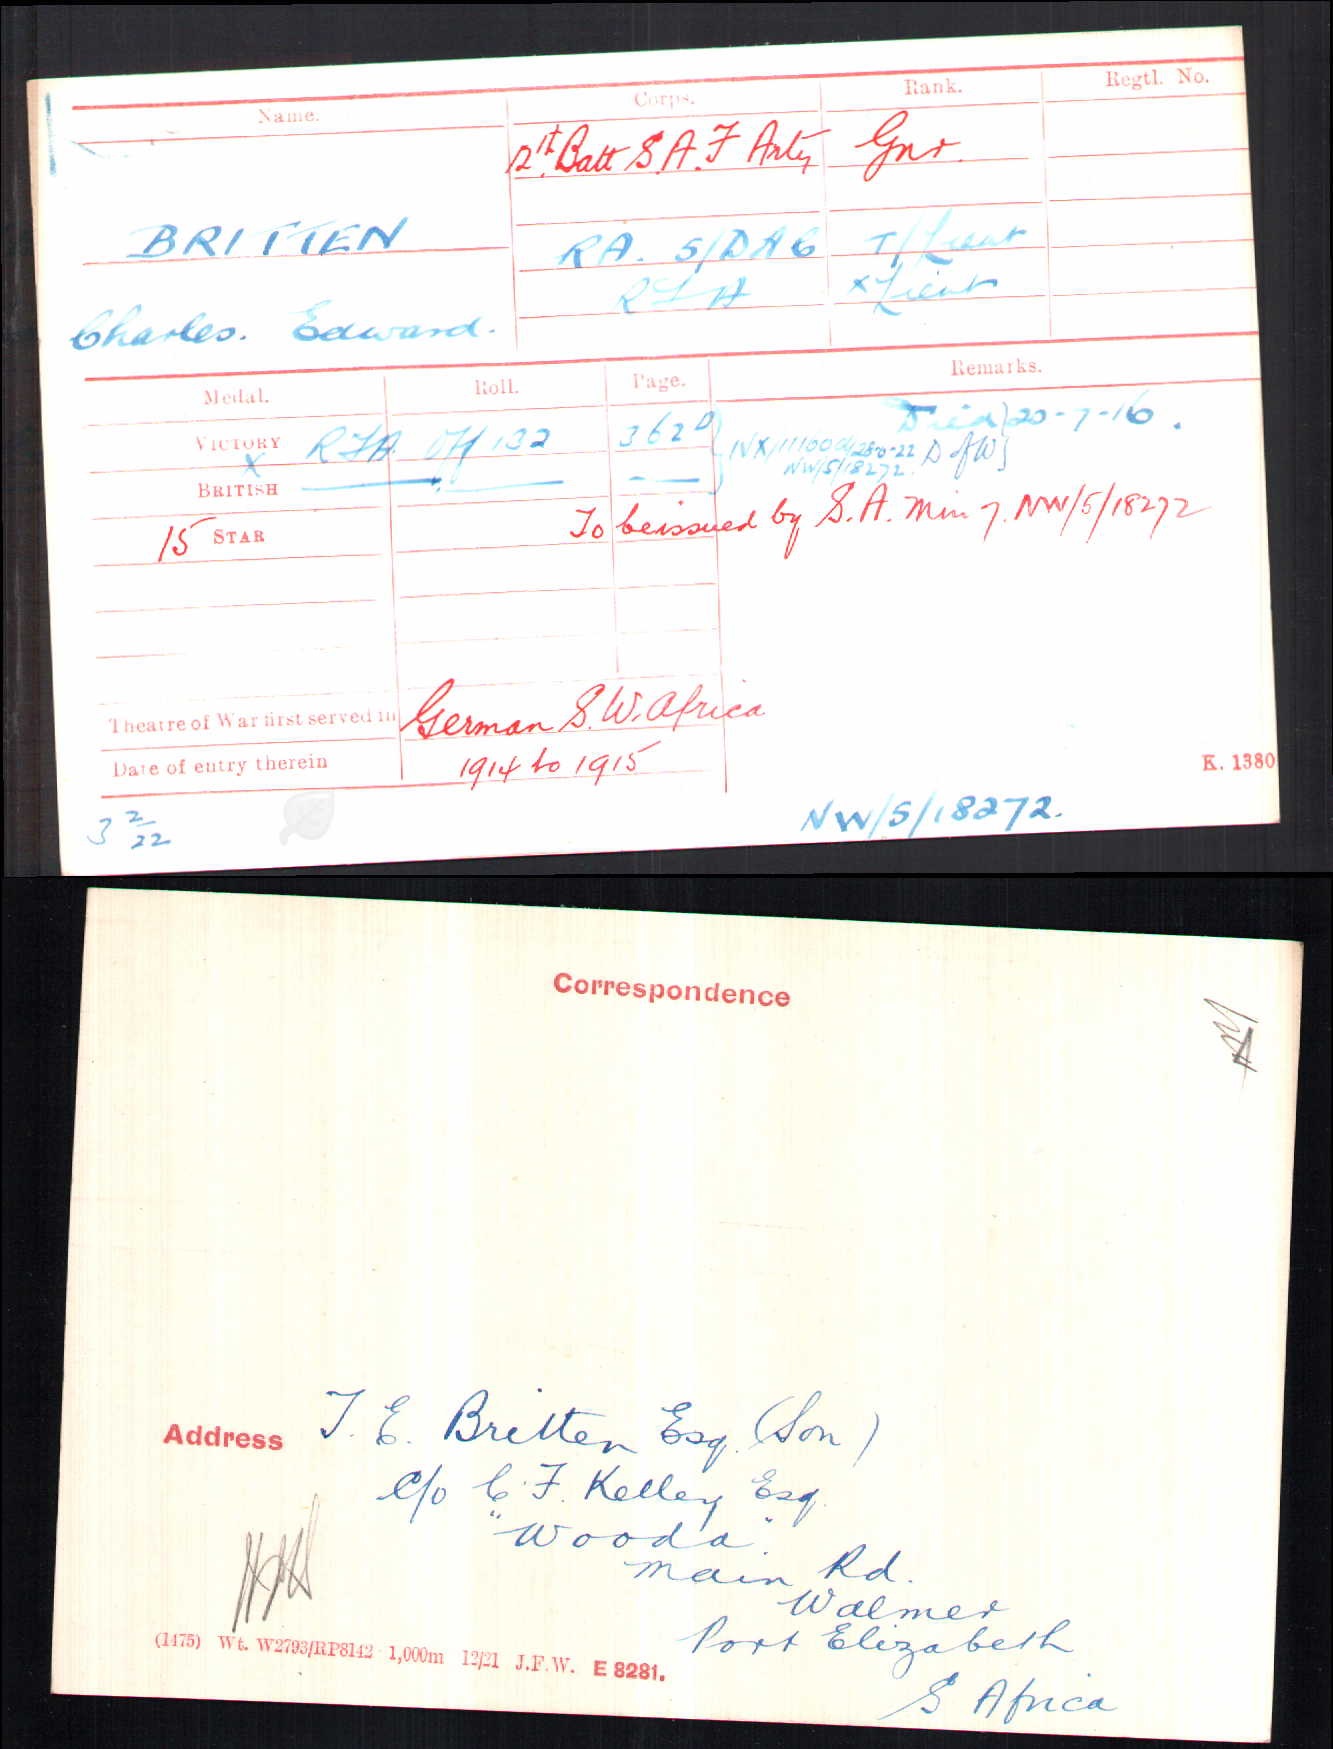 Name. Corps. Rank. Regtl. No.
Batt S.A.F Arty Gnr.
BRITTEN RA. 5/DAC T/Lieut
RFA x Lieut
Charles. Edward.
Medal. Roll. Page. Remarks.
Died 20-7-16.
VICTORY RFA Off 132 362 D of W
X NW/5/18272.
BRITISH
15 STAR To be issued by S.A. Min 7. NW/5/18272
Theatre of War first served in German S.W. Africa
Date of entry therein 1914 to 1915
K. 1380
3 2/22 NW/5/18272.
Correspondence
Address T. E. Britten Esq. (Son)
c/o C. F. Kelley Esq.
"Wooda"
Main Rd.
Walmer
Port Elizabeth
S Africa
(1475) Wt. W2793/RP8142 1,000m 12/21 J.F.W. E 8281.